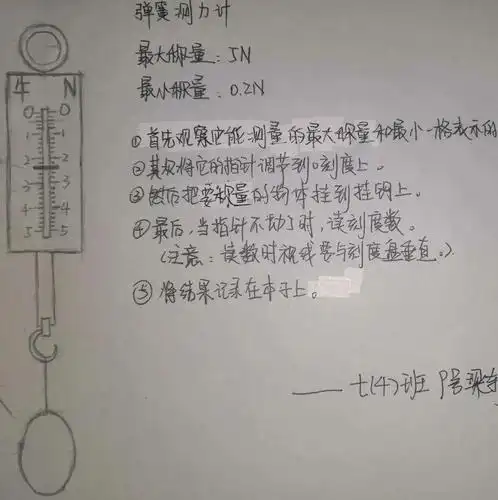 弹簧测力计
最大称量：5N
最小称量：0.2N
牛 N
0 0
1 1
2 2
3 3
4 4
5 5
①首先观察它能测量的最大称量和最小一格表示的
②其次将它的指针调节到0刻度上。
③然后把要称量的物体挂到挂钩上。
④最后，当指针不动了时，读刻度数。
（注意：读数时视线要与刻度盘垂直。）
⑤将结果记录在本子上。
——七(4)班